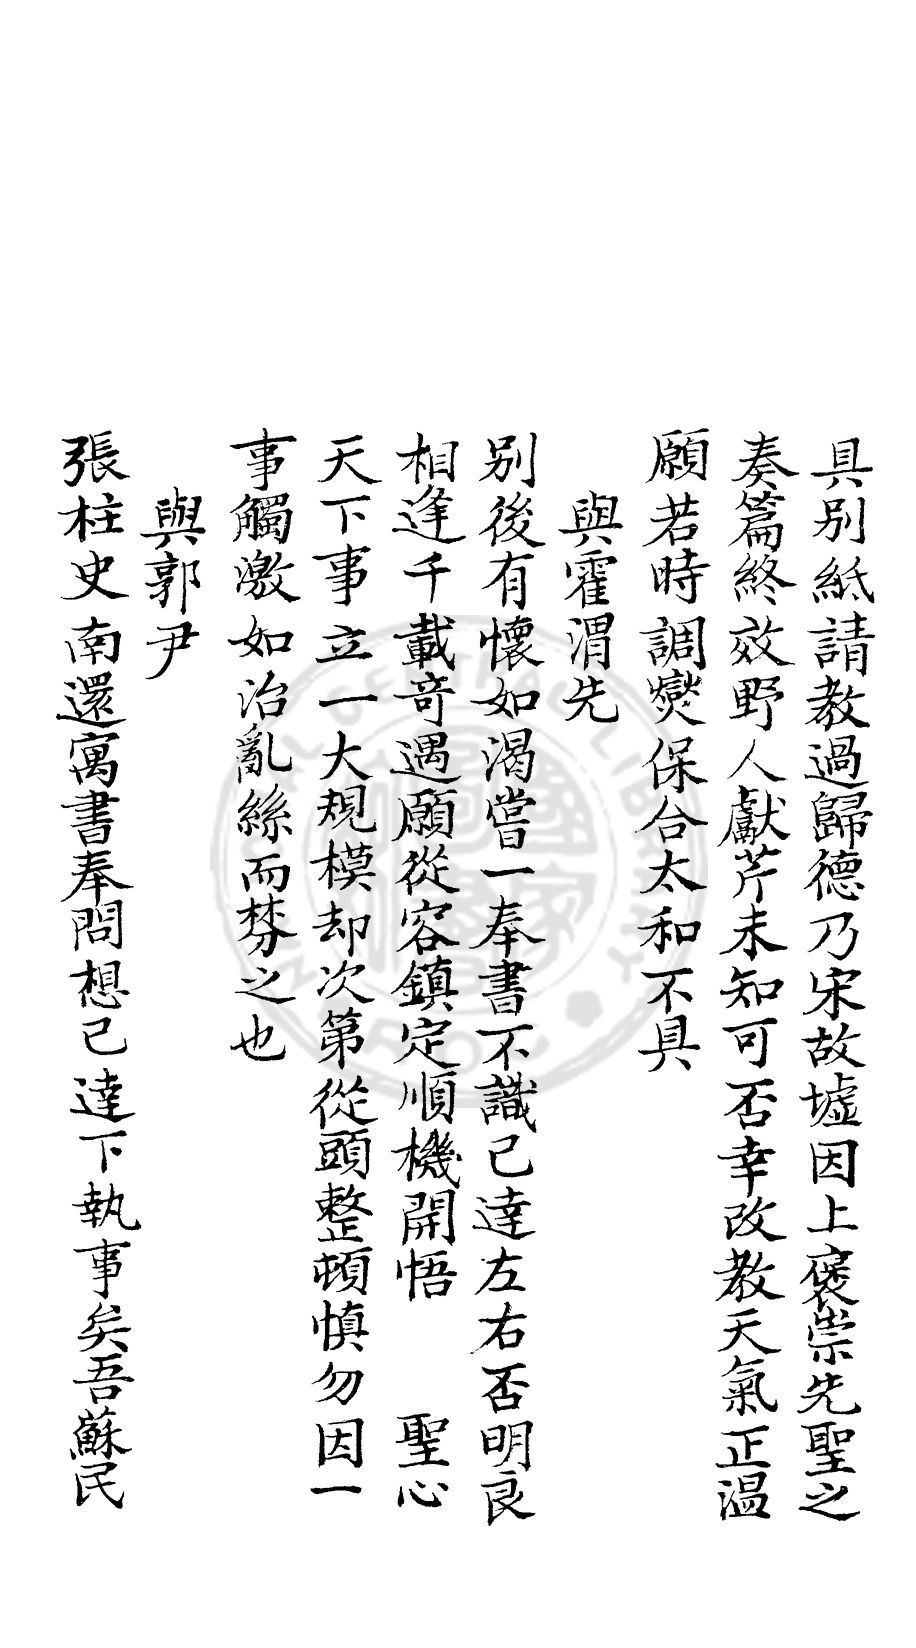 具別紙請教過歸德乃宋故墟因上褒崇先聖之
奏篇終效野人獻芹未知可否幸改教天氣正温
願若時調爕保合太和不具
與霍渭先
別後有懷如渴嘗一奉書不識已達左右否明良
相逢千載竒遇願從容鎮定順機開悟　聖心
天下事立一大規模却次第從頭整頓慎勿因一
事觸激如治亂絲而棼之也
與郭尹
張柱史南還寓書奉問想已達下執事矣吾蘇民